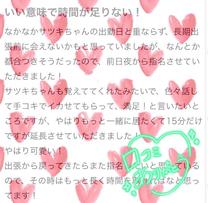 いい意味で時間が足りない!
なかなかサツキちゃんの出勤日と重ならず、長期出
張前に会えないかもと思っていましたが、なんとか
都合つきそうだったので、前日夜から指名させてい
ただきました!
サツキちゃんも覚えててくれたみたいで、色々話し
て手コキでイカせてもらって、満足!と言いたいと
ころですが、やはりもっと一緒に居たくて15分だけ
ですが延長させていただきました!
やはり可愛い!
出張から戻ってきたらまた指名したいと思っている
ので、その時はもっと長く時間を取れればなと思っ
てます!
口コミ